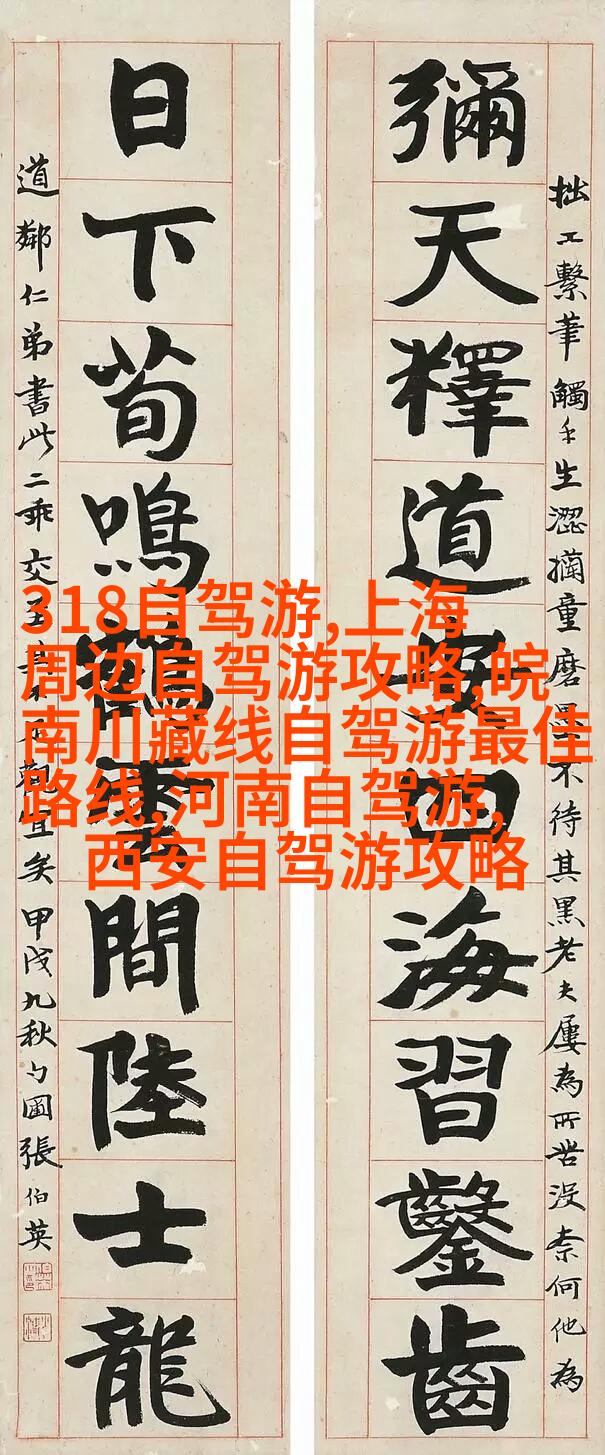 拙工繫筆觸手生澀童磨墨不待其黑老夫屢為所苦沒柰何他為
彌天釋道安四海習鑿齒
日下荀鳴鶴雲間陸士龍
道鄰仁弟書此二乖交至觀宜矣甲戌九秋勺圃張伯英
318自驾游,上海
周边自驾游攻略,皖
南川藏线自驾游最佳
路线,河南自驾游,
西安自驾游攻略